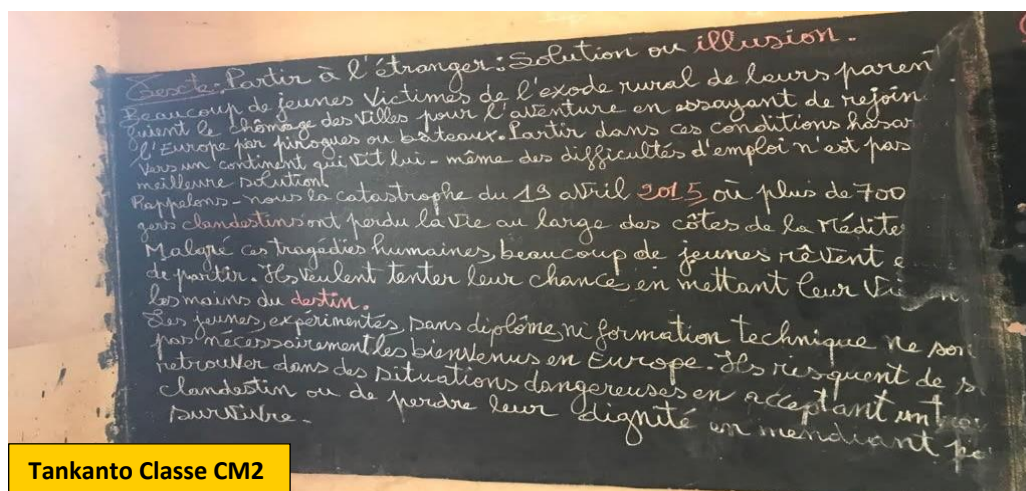 Texte: Partir à l'étranger: Solution ou illusion.
Beaucoup de jeunes victimes de l'exode rural de leurs paren
fuient le chômage des villes pour l'aventure en essayant de rejoin
l'Europe par pirogues ou bateaux. Partir dans ces conditions hasar
vers un continent qui vit lui-même des difficultés d'emploi n'est pas
meilleure solution.
Rappelons-nous la catastrophe du 19 avril 2015 où plus de 700
gers clandestins ont perdu la vie au large des côtes de la Médite
Malgré ces tragédies humaines, beaucoup de jeunes rêvent e
de partir. Ils veulent tenter leur chance en mettant leur vie
les mains du destin.
Les jeunes, expérimentés, sans diplôme, ni formation technique ne son
pas nécessairement les bienvenus en Europe. Ils risquent de s
retrouver dans des situations dangereuses en acceptant un
clandestin ou de perdre leur dignité en mendiant po
survivre.
Tankanto Classe CM2